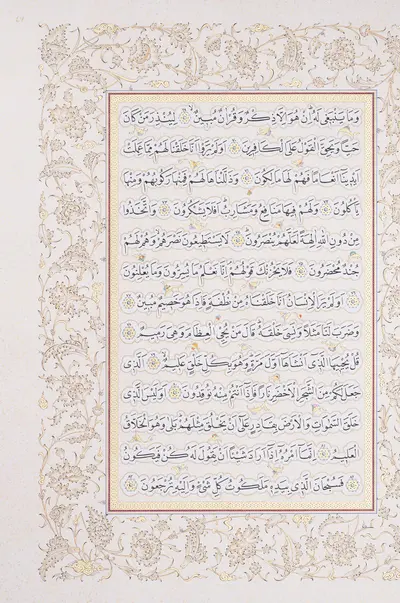 وَمَا يَنْبَغِي لَهُ إِنْ هُوَ إِلَّا ذِكْرٌ وَقُرْآنٌ مُبِينٌ لِيُنْذِرَ مَنْ كَانَ
حَيًّا وَيَحِقَّ الْقَوْلُ عَلَى الْكَافِرِينَ أَوَلَمْ يَرَوْا أَنَّا خَلَقْنَا لَهُمْ مِمَّا عَمِلَتْ
أَيْدِينَا أَنْعَامًا فَهُمْ لَهَا مَالِكُونَ وَذَلَّلْنَاهَا لَهُمْ فَمِنْهَا رَكُوبُهُمْ وَمِنْهَا
يَأْكُلُونَ وَلَهُمْ فِيهَا مَنَافِعُ وَمَشَارِبُ أَفَلَا يَشْكُرُونَ وَاتَّخَذُوا
مِنْ دُونِ اللَّهِ آلِهَةً لَعَلَّهُمْ يُنْصَرُونَ لَا يَسْتَطِيعُونَ نَصْرَهُمْ وَهُمْ لَهُمْ
جُنْدٌ مُحْضَرُونَ فَلَا يَحْزُنْكَ قَوْلُهُمْ إِنَّا نَعْلَمُ مَا يُسِرُّونَ وَمَا يُعْلِنُونَ
أَوَلَمْ يَرَ الْإِنْسَانُ أَنَّا خَلَقْنَاهُ مِنْ نُطْفَةٍ فَإِذَا هُوَ خَصِيمٌ مُبِينٌ
وَضَرَبَ لَنَا مَثَلًا وَنَسِيَ خَلْقَهُ قَالَ مَنْ يُحْيِي الْعِظَامَ وَهِيَ رَمِيمٌ
قُلْ يُحْيِيهَا الَّذِي أَنْشَأَهَا أَوَّلَ مَرَّةٍ وَهُوَ بِكُلِّ خَلْقٍ عَلِيمٌ الَّذِي
جَعَلَ لَكُمْ مِنَ الشَّجَرِ الْأَخْضَرِ نَارًا فَإِذَا أَنْتُمْ مِنْهُ تُوقِدُونَ أَوَلَيْسَ الَّذِي
خَلَقَ السَّمَوَاتِ وَالْأَرْضَ بِقَادِرٍ عَلَى أَنْ يَخْلُقَ مِثْلَهُمْ بَلَى وَهُوَ الْخَلَّاقُ
الْعَلِيمُ إِنَّمَا أَمْرُهُ إِذَا أَرَادَ شَيْئًا أَنْ يَقُولَ لَهُ كُنْ فَيَكُونُ
فَسُبْحَانَ الَّذِي بِيَدِهِ مَلَكُوتُ كُلِّ شَيْءٍ وَإِلَيْهِ تُرْجَعُونَ